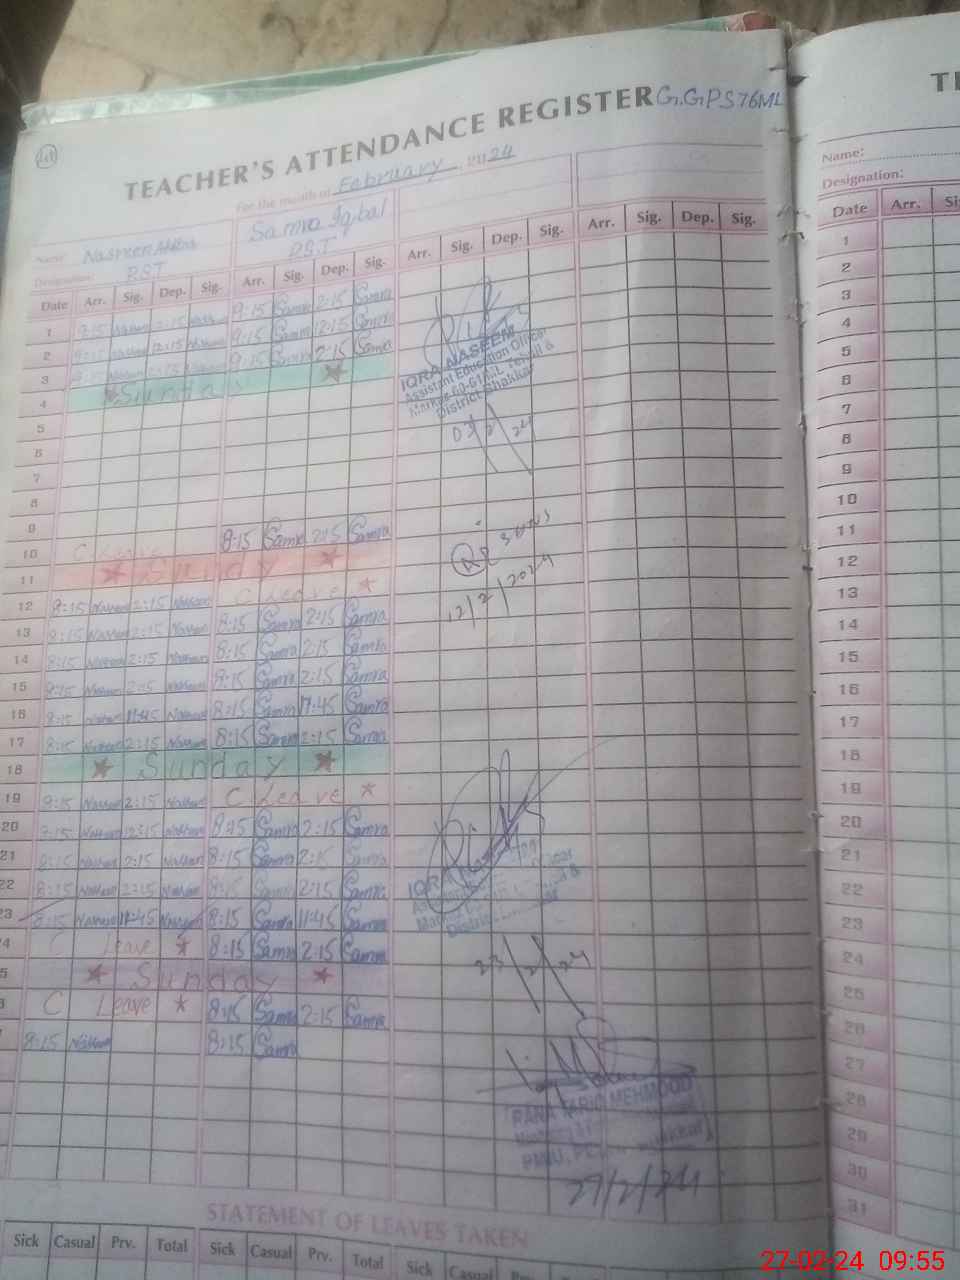 TEACHER'S ATTENDANCE REGISTER G.GPS 76ML
For the month of February 2024
Name Nasreen Akhtar Samra Iqbal
Designation: P.S.T P.S.T
Date Arr. Sig. Dep. Sig. Arr. Sig. Dep. Sig. Arr. Sig. Dep. Sig. Arr. Sig. Dep. Sig.
1 9:15 2:15 9:15 Samra 2:15 Samra
2 9:15 12:15 9:15 Samra 12:15 Samra
3 9:15 2:15 9:15 Samra 2:15 Samra
4 Sunday
5
6
7
8
9
10 C Leave 8:15 Samra 2:15 Samra
11 Sunday
12 8:15 Nasreen 2:15 Nasreen C Leave
13 8:15 Nasreen 2:15 Nasreen 8:15 Samra 2:15 Samra
14 8:15 Nasreen 2:15 Nasreen 8:15 Samra 2:15 Samra
15 8:15 Nasreen 2:15 Nasreen 8:15 Samra 2:15 Samra
16 8:15 Nasreen 11:45 Nasreen 8:15 Samra 11:45 Samra
17 8:15 Nasreen 2:15 Nasreen 8:15 Samra 2:15 Samra
18 Sunday
19 8:15 Nasreen 2:15 Nasreen C Leave
20 8:15 Nasreen 12:15 Nasreen 8:15 Samra 2:15 Samra
21 8:15 Nasreen 2:15 Nasreen 8:15 Samra 2:15 Samra
22 8:15 Nasreen 2:15 Nasreen 8:15 Samra 2:15 Samra
23 8:15 Nasreen 11:45 Nasreen 8:15 Samra 11:45 Samra
4 Leave 8:15 Samra 2:15 Samra
5 Sunday
C Leave 8:15 Samra 2:15 Samra
8:15 Nasreen 8:15 Samra
IQRA NASEEM
Assistant Education Officer
District Bhakkar
03/2/24
12/2/2024
IQRA
District
23/2/24
RANA TARIQ MEHMOOD
27/2/24
STATEMENT OF LEAVES TAKEN
Sick Casual Prv. Total Sick Casual Prv. Total Sick Casual
Name:
Designation:
Date Arr.
1
2
3
4
5
6
7
8
9
10
11
12
13
14
15
16
17
18
19
20
21
22
23
24
25
26
27
28
29
30
31
27-02-24 09:55